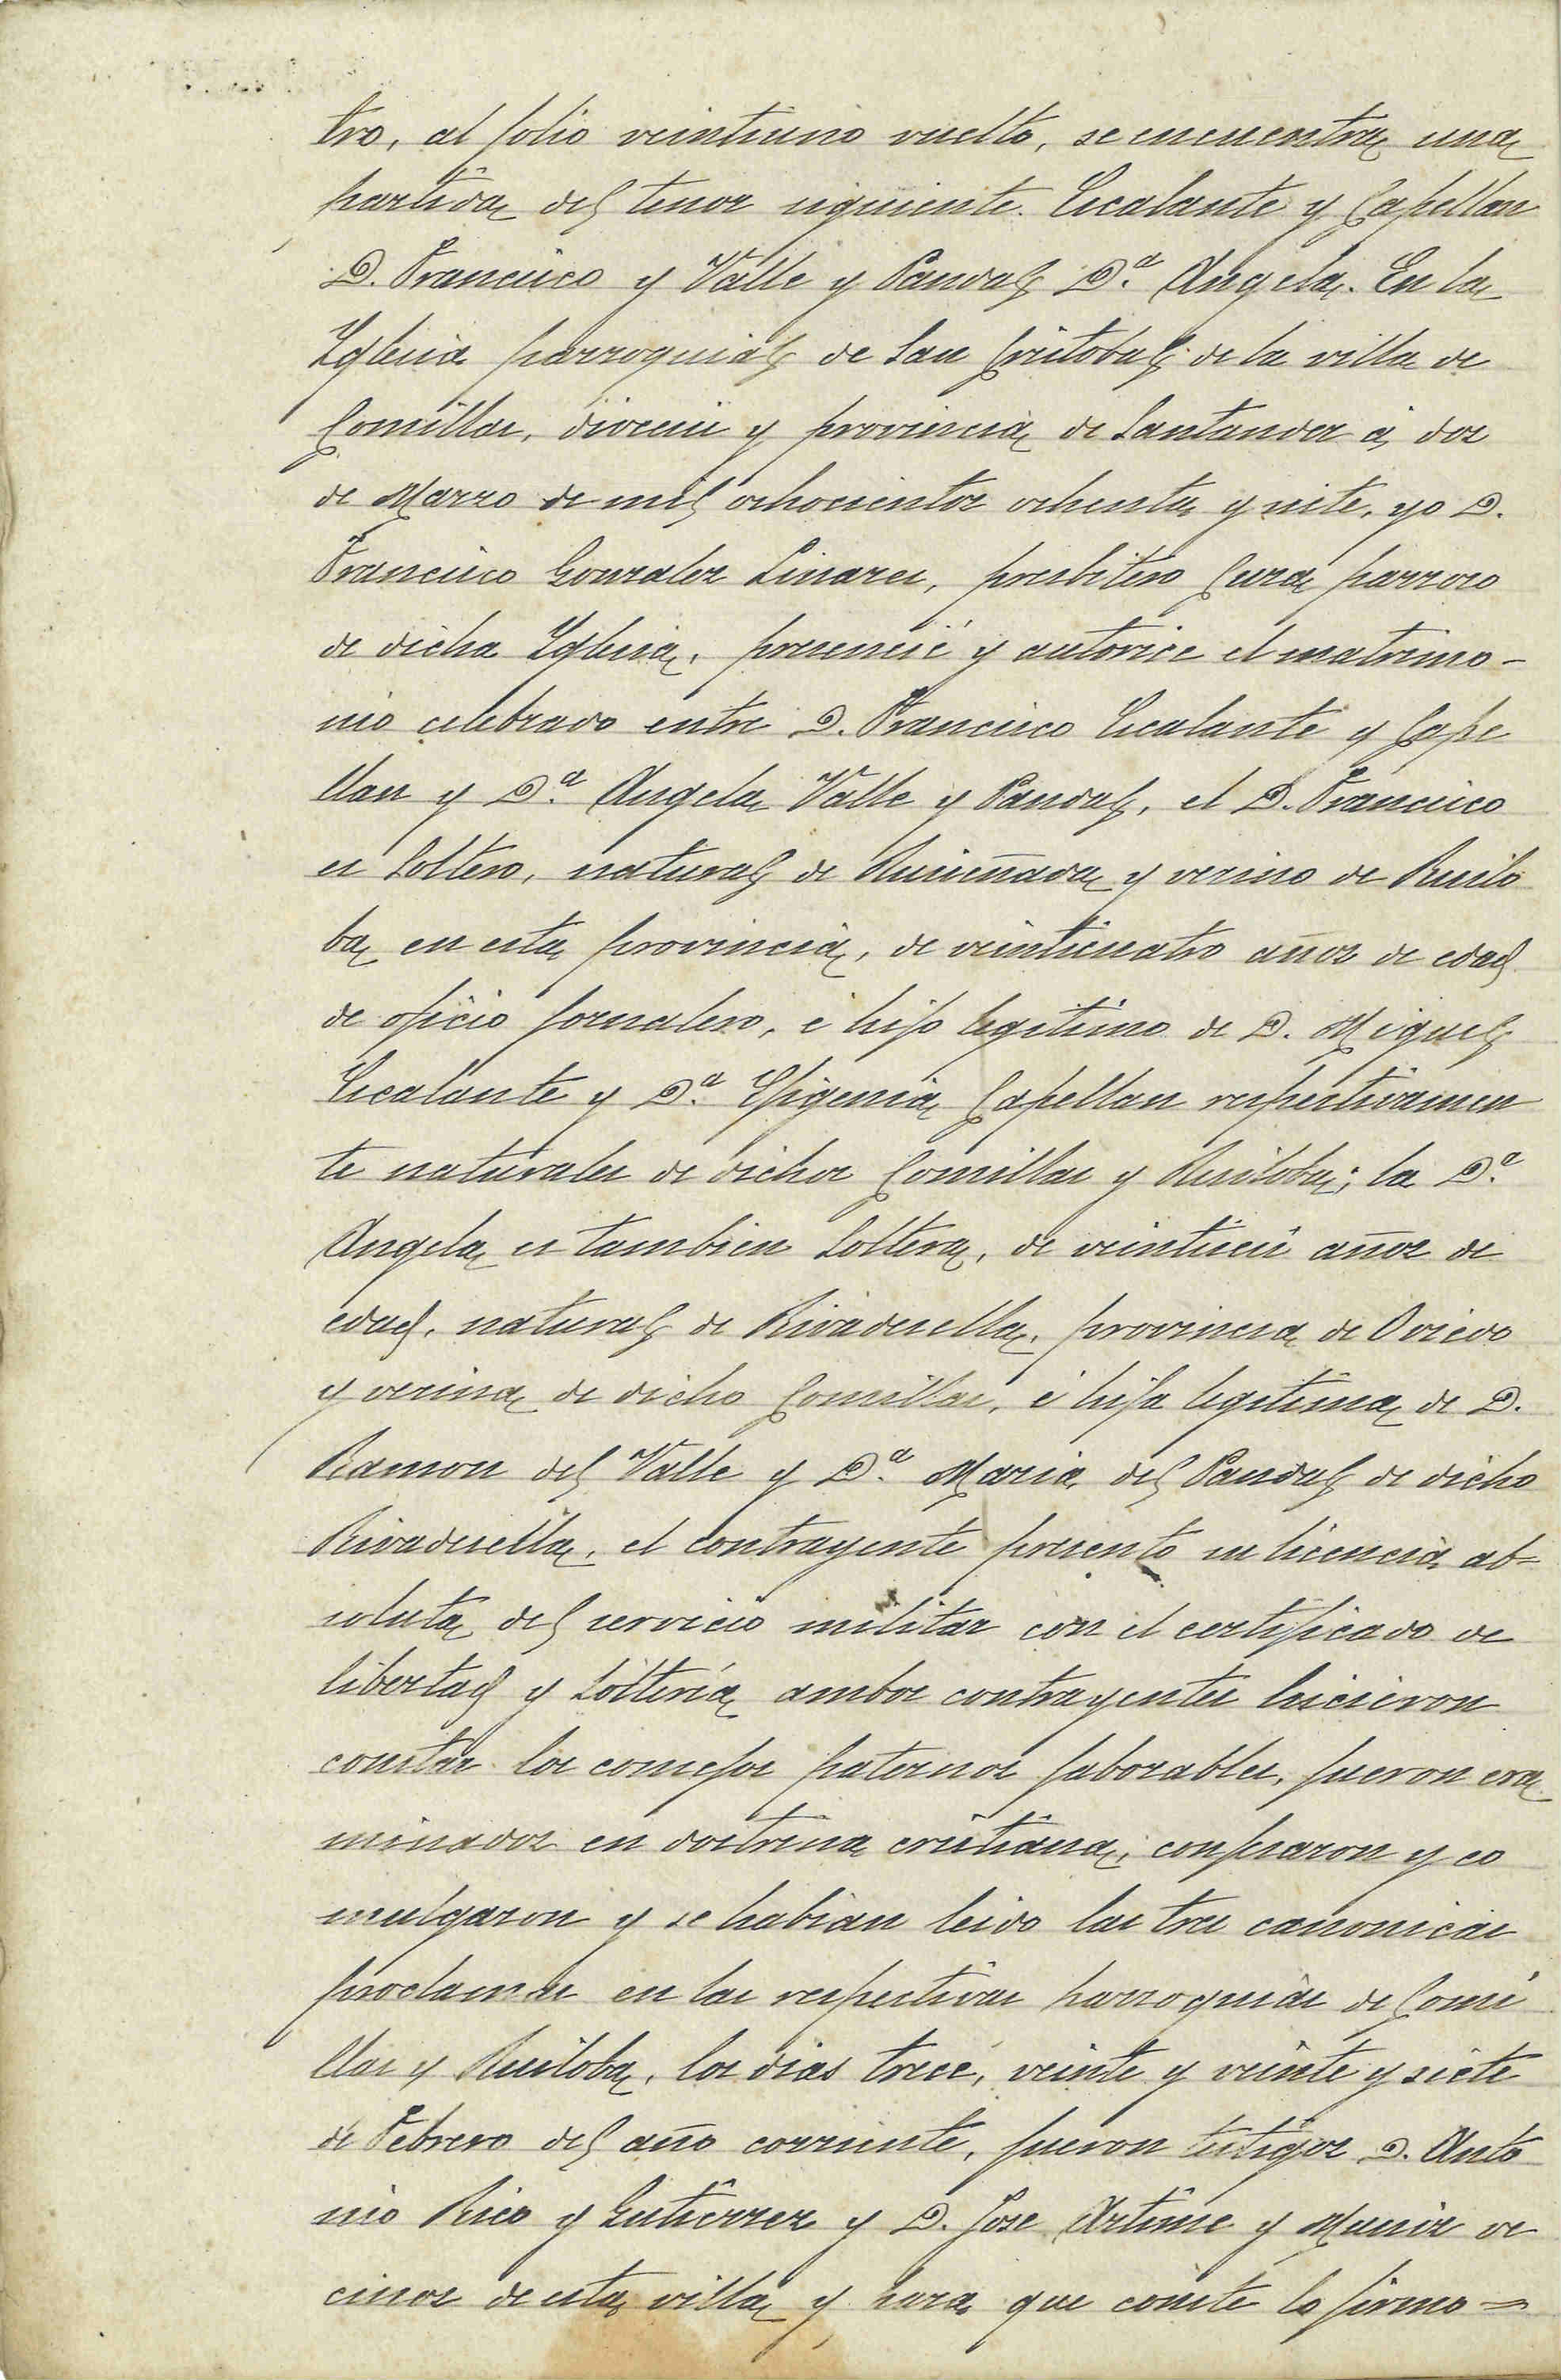 tro, al folio veintiuno vuelto, se encuentra una
partida del tenor siguiente. Escalante y Capellan
D. Francisco y Valle y Pandal D.ª Angela. En la
Yglesia parroquial de San Cristobal de la villa de
Comillas, diocesis y provincia de Santander á dos
de Marzo de mil ochocientos ochenta y siete, yo D.
Francisco Gonzalez Linares, presbitero Cura parroco
de dicha Yglesia, presencié y autorice el matrimo-
nio celebrado entre D. Francisco Escalante y Cape
llan y D.ª Angela Valle y Pandal, el D. Francisco
es Soltero, natural de Ruiseñada y vecino de Ruilo
ba en esta provincia, de veinticuatro años de edad
de oficio jornalero, é hijo legitimo de D. Miguel
Escalante y D.ª Efigenia Capellan respectivamen
te naturales de dichos Comillas y Ruiloba; la D.ª
Angela es tambien Soltera, de veintiseis años de
edad, natural de Rivadesella, provincia de Oviedo
y vecina de dicho Comillas, é hija legitima de D.
Ramon del Valle y D.ª Maria del Pandal de dicho
Rivadesella, el contrayente presento su licencia ab=
soluta del servicio militar con el certificado de
libertad y Soltería, ambos contrayentes hicieron
constar los consejos paternos faborables, fueron exa
minados en doctrina cristiana, confesaron y co
mulgaron y se habian leido las tres canonicas
proclamas en las respectivas parroquias de Comi
llas y Ruiloba, los dias trece, veinte y veinte y siete
de Febrero del año corriente, fueron testigos D. Anto
nio Rico y Gutierrez y D. Jose Artime y Muñiz ve
cinos de esta villa y para que conste lo firmo=